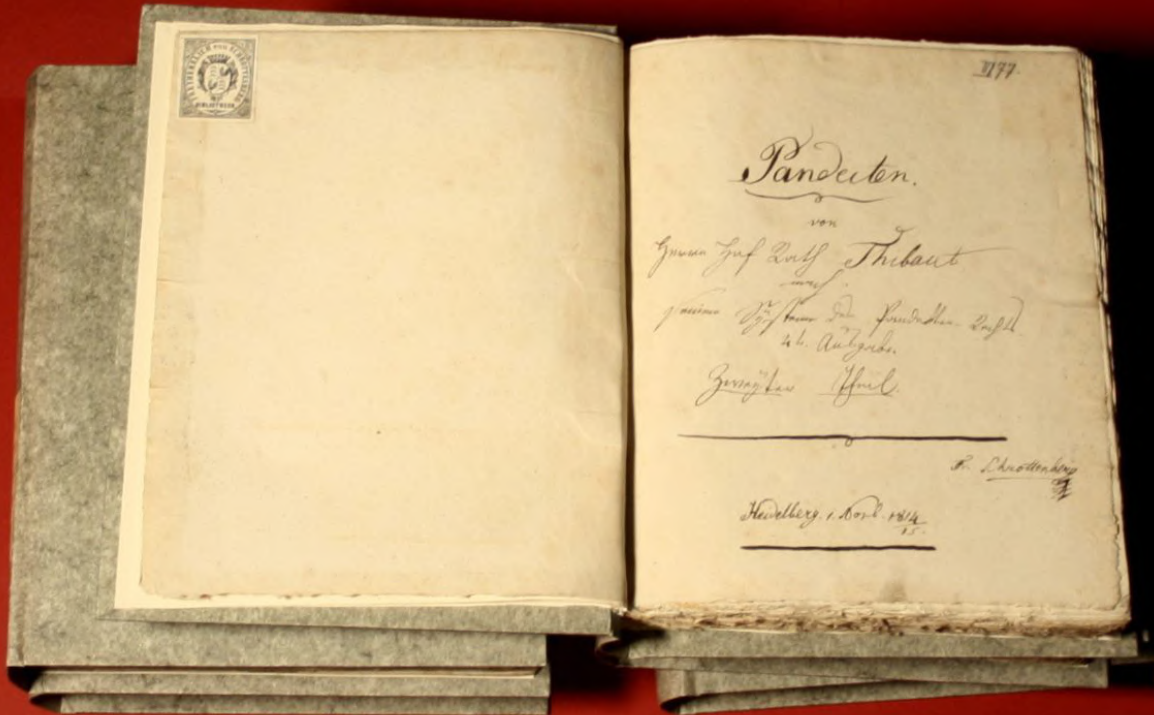 II/77.
Pandecten.
von
Herrn Hof Rath Thibaut
nach
seinem System des Pandekten-Rechts
4t. Ausgabe.
Zweÿter Theil.
Fr. Schrottenberg
Heidelberg. 1. Novb. 1814
15.
BIBLIOTHEK